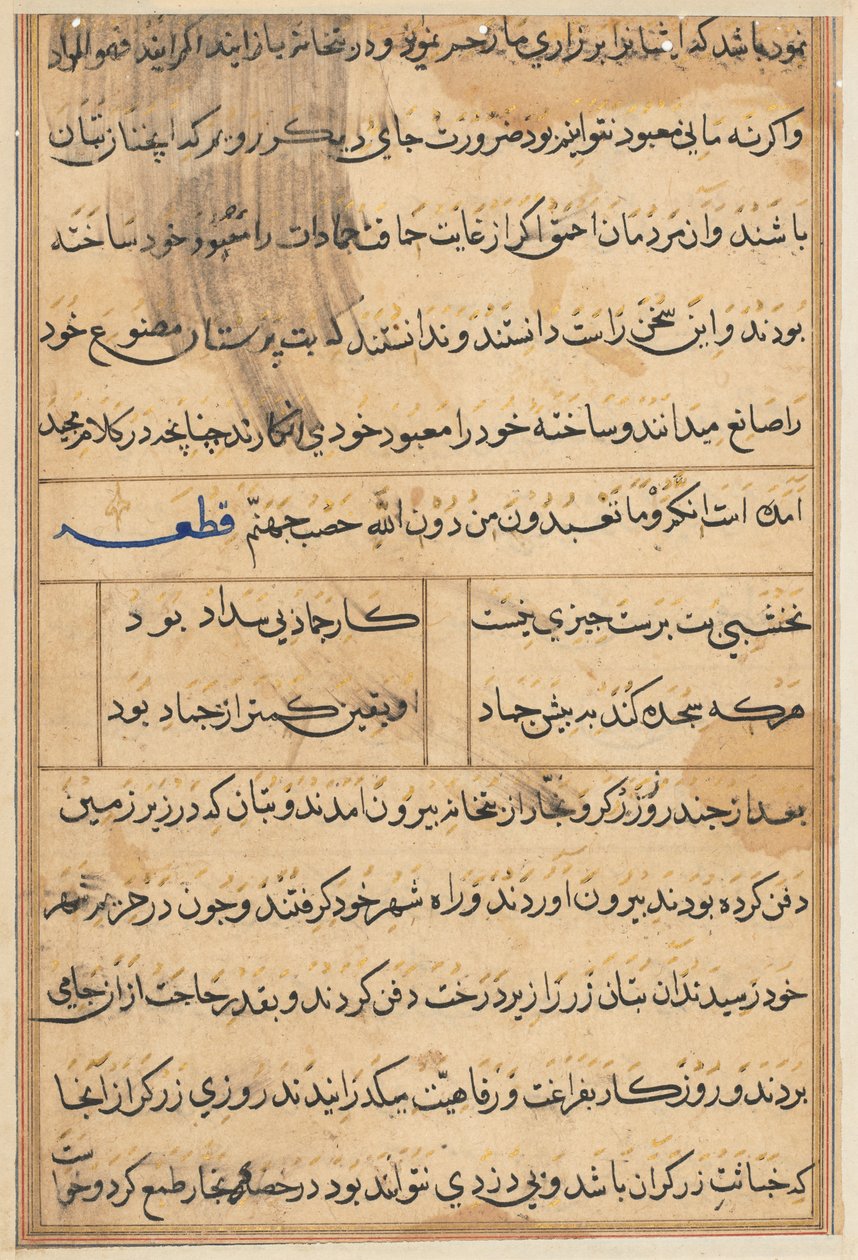 نمود باشد که ایشانرا بر زاری ما رحم نمویند و در بتخانه باز ایند اکر ایند فهو المراد
واکر نه ما بی معبود نتوانیم بود ضرورت جای دیکر رویم که اینجا از بتان
باشند وان مردمان احمق اکر از غایت حماقت جمادات را معبود خود ساخته
بودند و این سخن راست دانستند و ندانستند که بت پرستان مصنوع خود
را صانع میدانند و ساخته خود را معبود خود می انکارند چنانچه در کلام مجید
امده است انکم وما تعبدون من دون الله حصب جهنم قطعه
نخشبی بت برست جیزی نیست کار جمادی بی سداد بود
هرکه سجده کند به بیش جماد او یقین کمتر از جماد بود
بعد از جند روز زرکر و نجار از بتخانه بیرون امدند و بتان که در زیر زمین
دفن کرده بودند بیرون اوردند و راه شهر خود کرفتند و جون در حریم شهر
خود رسیدند ان بتان زر را زیر درخت دفن کردند و بقدر حاجت از ان جامی
بردند و روزکار بفراغت و رفاهیت میکذرانیدند روزی زرکر از انجا
که خباثت زرکران باشد و بی دزدی نتوانند بود در حصه نجار طمع کرد و خواست